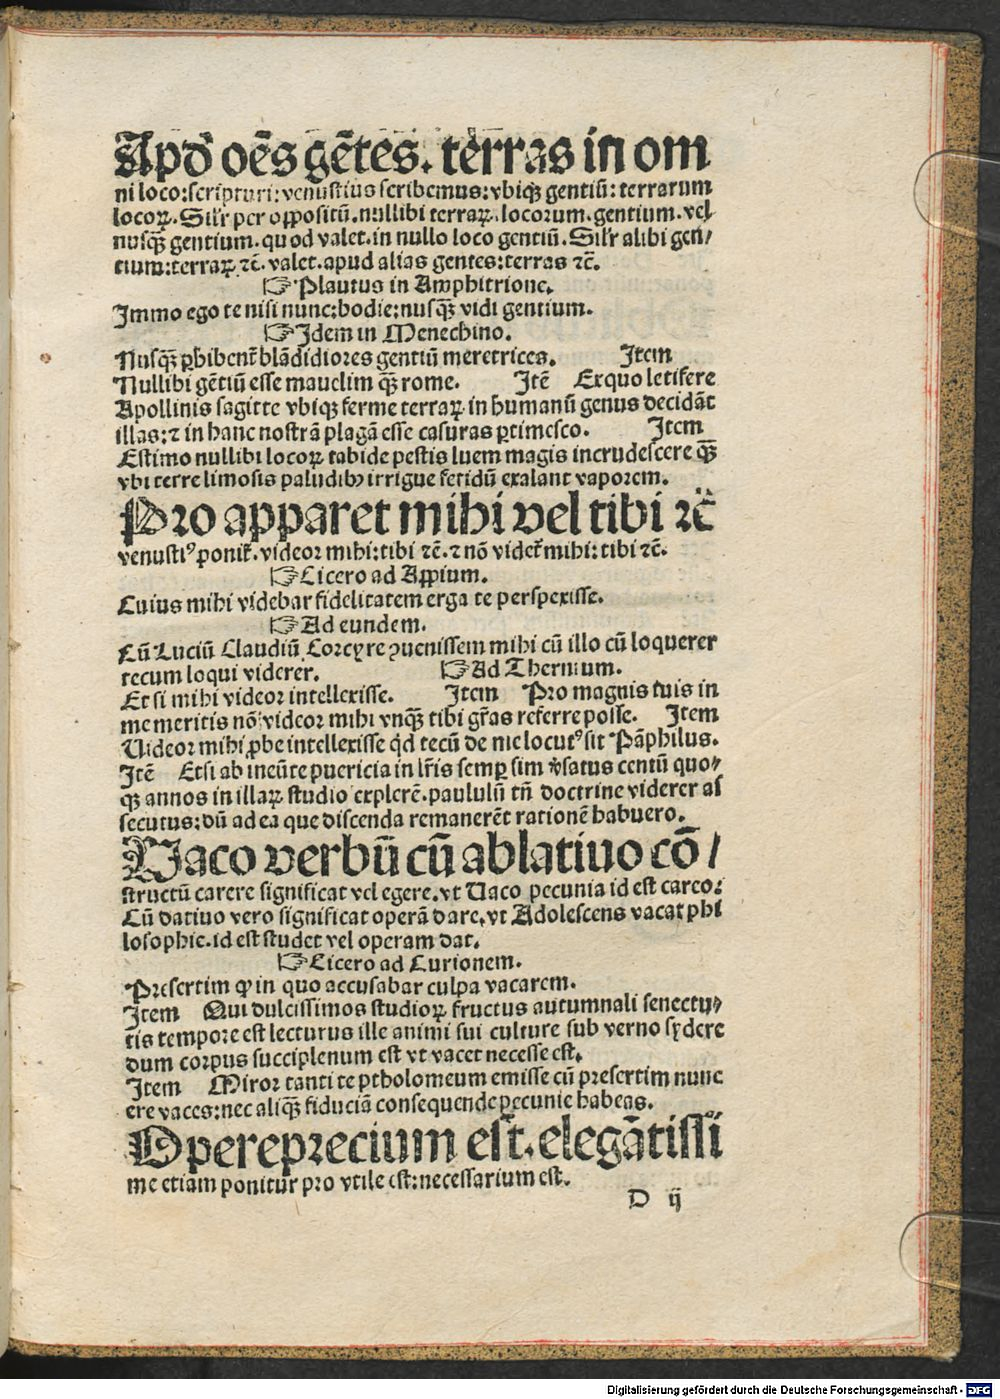 Apď oēs gētes. terras in om
ni loco:scripturi:venustius scribemus:vbiqꝫ gentiū:terrarum
locoꝝ. Sil'r per oppositū.nullibi terraꝝ.locorum.gentium.vel
nusqꝫ̄ gentium.quod valet.in nullo loco gentiū. Sil'r alibi gen/
tium:terraꝝ.ꝛc̄. valet.apud alias gentes:terras ꝛc̄.
☞ Plautus in Amphitrione.
Immo ego te nisi nunc:hodie:nusqꝫ̄ vidi gentium.
☞ Idem in Menechino.
Nusqꝫ̄ ꝑhibent̄ blādidiores gentiū meretrices. Item
Nullibi gētiū esse mauelim qꝫ̄ rome. Itē Ex quo letifere
Apollinis sagitte vbiqꝫ ferme terraꝝ in humanū genus decidāt
illas:ꝛ in hanc nostrā plagā esse casuras ꝑtimesco. Item
Estimo nullibi locoꝝ tabide pestis luem magis incrudescere qꝫ̄
vbi terre limosis paludibꝫ irrigue fetidū exalant vaporem.
Pro apparet mihi vel tibi ꝛc̄
venustiꝰ ponit̄. videor mihi:tibi ꝛc̄. ꝛ nō videt̄ mihi:tibi ꝛc̄.
☞ Cicero ad Appium.
Cuius mihi videbar fidelitatem erga te perspexisse.
☞ Ad eundem.
Cū Luciū Claudiū Corcyre ꝯuenissem mihi cū illo cū loquerer
tecum loqui viderer. ☞ Ad Thermum.
Et si mihi videor intellexisse. Item Pro magnis tuis in
me meritis nō videor mihi vnqꝫ̄ tibi gr̄as referre posse. Item
Uideor mihi ꝓbe intellexisse qd̄ tecū de me locutꝰ sit Pāphilus.
Itē Etsi ab ineūte puericia in lr̄is semꝑ sim v̓satus centū quo/
qꝫ annos in illaꝝ studio explerē.paululū tn̄ doctrine viderer as
secutus:dū ad ea que discenda remanerēt rationē habuero.
Uaco verbū cū ablatiuo cō/
structū carere significat vel egere.vt Uaco pecunia id est careo:
Cū datiuo vero significat operā dare.vt Adolescens vacat phi
losophie.id est studet vel operam dat.
☞ Cicero ad Curionem.
Presertim ꝙ in quo accusabar culpa vacarem.
Item Qui dulcissimos studioꝝ fructus autumnali senectu/
tis tempore est lecturus ille animi sui culture sub verno sydere
dum corpus succiplenum est vt vacet necesse est.
Item Miror tanti te ptholomeum emisse cū presertim nunc
ere vaces:nec aliqꝫ̄ fiduciā consequende pecunie habeas.
Opereprecium est. elegātissi
me etiam ponitur pro vtile est:necessarium est.
D ij
Digitalisierung gefördert durch die Deutsche Forschungsgemeinschaft - DFG